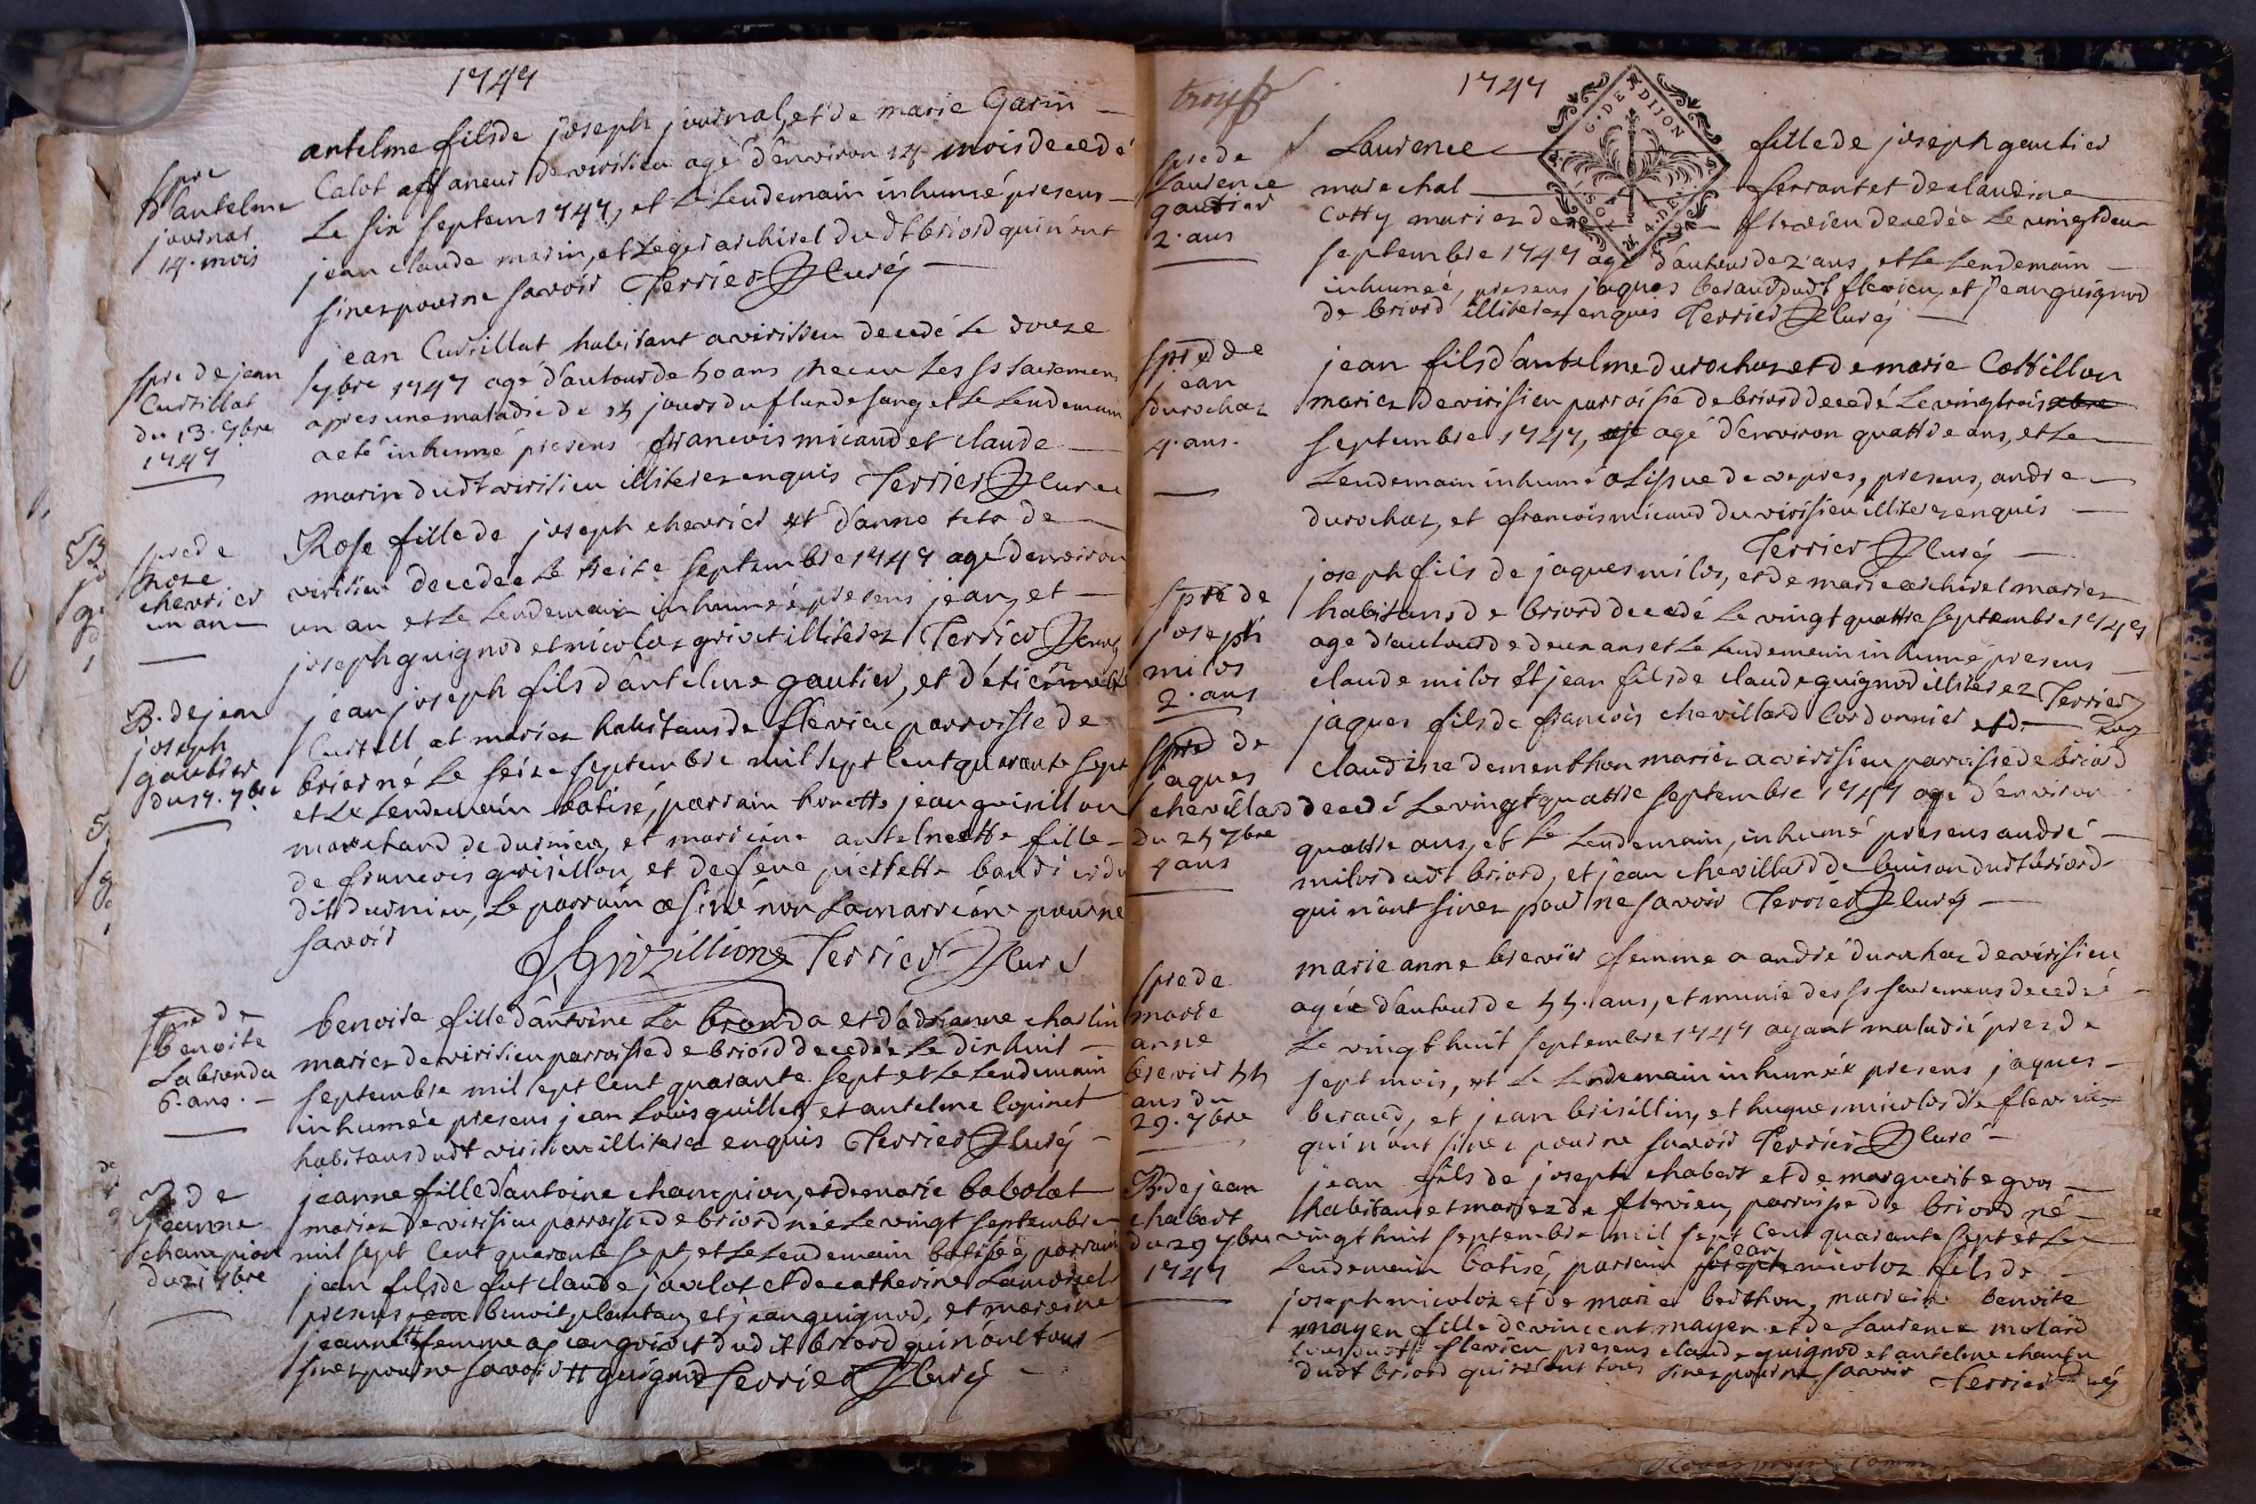 1747
spre
d'antelme
journal
14. mois
antelme fils de joseph journal, et de marie Garin
Calot affaneur de virisieu agé d'environ 14 mois decedé
Le six septem 1747, et le Lendemain inhumé presens
jean claude marin, et Leger archirel dudt briord qui n'ont
sinez pour ne savoir Terrier Curé
spre de jean
Curtillat
du 13. 7bre
1747
jean Curtillat habitant a virisieu decedé Le douze
7bre 1747 agé d'autour de 50 ans, receu Les ss sacremens
apres une maladie de 15 jours du flux de sang et Le Lendemain
a eté inhumé presens francois micaud et claude
marin dudt virisieu illiterez enquis Terrier Curé
spre de
roze
chevrier
un an
Rose fille de joseph chevrier et d'anne teto de
virisieu decedée Le treize septembre 1747 agé d'environ
un an et Le Lendemain inhumée, presens jean, et
joseph guignod et nicolas grivet illiterez Terrier Curé
B. de jean
joseph
gautier
du 17. 7bre
jean joseph fils d'antelme gautier, et d'etiennette
Curtill et mariez habitans de flevieu parroisse de
briord né Le seize septembre mil sept cent quarante sept
et Le Lendemain batisé, parrain honette jean grisillon
marchand de durnieu, et marreine antelmette fille
de francois grisillon, et de feue pierrette baudi
dit durnieu, Le parrain a siné non La marreine pour ne
savoir
J Grizillion Terrier Curé
spre de
benoite
Labronda
6. ans.
benoite fille d'antoine La bronda et d'adrianne charlin
mariez de virisieu parroisse de briord decedée Le dixhuit
septembre mil sept cent quarante sept et Le Lendemain
inhumée presens jean Louis quillet, et antelme Copinet
habitans dudt virisieu illiterez enquis Terrier Curé
B. de
jeanne
champion
du 21 7bre
jeanne fille d'antoine champion, et de marie babolat
mariez de virisieu parroisse de briord née Le vingt septembre
mil sept cent quarante sept, et Le Lendemain batisée, parrain
jean fils de fut claude javelot et de catherine
presens benoit plantan, et jean guignod, et marreine
jeannette femme a jean grivet dudit briord qui n'ont tous
sinez pour ne savoir guignod Terrier Curé
1747
G. DE DIJON
SOLS 4. DE
spre de
Laurence
gautier
2. ans
Laurence fille de joseph gautier
marechal ferrant et de claudine
Cotty mariez de flevieu decedée Le vingt deux
septembre 1747 agé d'autour de 2 ans, et Le Lendemain
inhumée, presens jaques beraud dudt flevieu, et jean guignod
de briord illiterez enquis Terrier Curé
spre de
jean
durochaz
4. ans.
jean fils d'antelme durochaz et de marie Cottillon
mariez de virisieu parroisse de briord decedé Le vingtrois
septembre 1747, agé d'environ quattre ans, et Le
Lendemain inhumé a L'issue de vepres, presens, andre
durochaz, et francois micaud du virisieu illiterez enquis
Terrier Curé
spre de
joseph
milos
2. ans
joseph fils de jaques milos, et de marie archirel mariez
habitans de briord decedé Le vingt quattre septembre 1747
agé d'autour de deux ans et Le Lendemain inhumé presens
claude milos et jean fils de claude guignod illiterez Terrier
Curé
spre de
jaques
chevillard
du 25 7bre
4 ans
jaques fils de francois chevillard Cordonnier et de
claudine dementhon mariez a virisieu parroisse de briord
decedé Le vingt quattre septembre 1747 agé d'environ
quattre ans, et Le Lendemain, inhumé presens andré
milos dudt briord, et jean chevillard de buison dudt briord
qui n'ont sinez pour ne savoir Terrier Curé
spre de
marie
anne
brevier 55
ans du
29. 7bre
marie anne brevier femme a andré durochaz de virisieu
agée d'autour de 55. ans, et munie des ss sacremens decedée
Le vingt huit septembre 1747 ayant maladié prez de
sept mois, et Le Lendemain inhumée presens jaques
beraud, et jean brisillin, et hugues micolos de flevieu
qui n'ont sinez pour ne savoir Terrier Curé
B. de jean
chabert
du 29 7bre
1747
jean fils de joseph chabert et de marguerite gros
habitans et mariez de flevieu, parroisse de briord né
vingt huit septembre mil sept cent quarante sept et Le
Lendemain batisé, parrain jean micoloz fils de
joseph micoloz et de marie berthon, marreine benoite
mayen fille de vincent mayen et de Laurence molard
tous dudt flevieu presens claude guignod et antelme chantu
dudt briord qui n'ont tous sinez pour ne savoir Terrier Curé